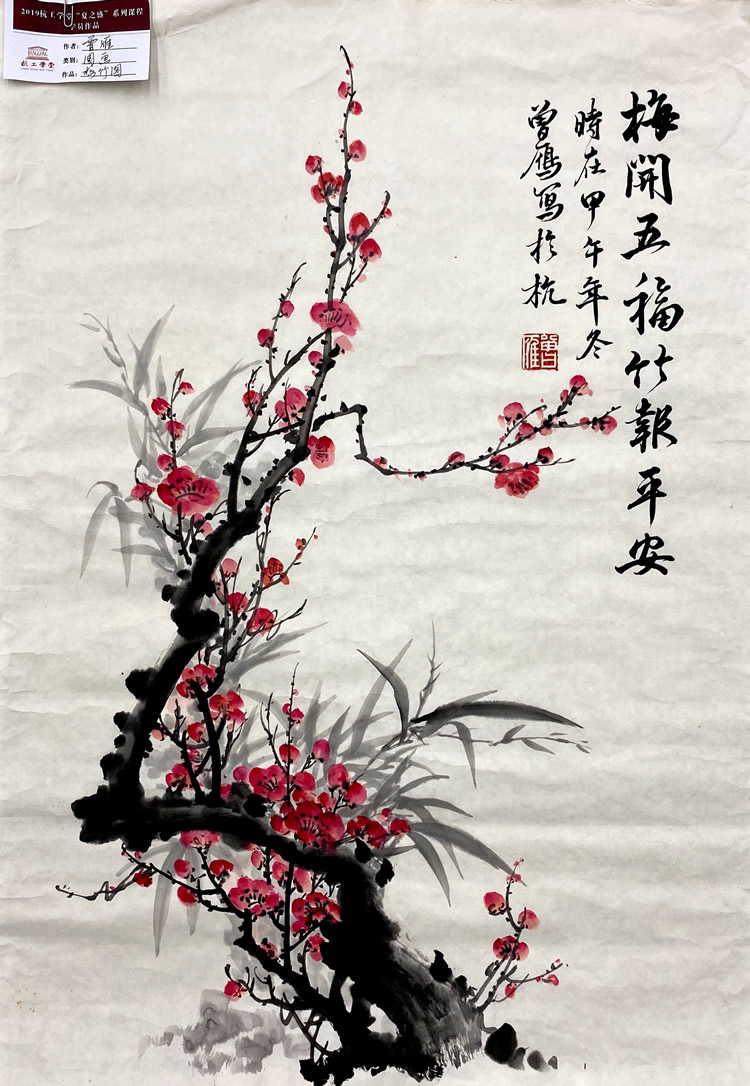 2019杭工学堂“夏之盛”系列课程
学员作品
作者：曾雁
类别：国画
作品：梅竹图
杭工学堂
梅開五福竹報平安
時在甲午年冬
曾鴈写於杭
曾雁